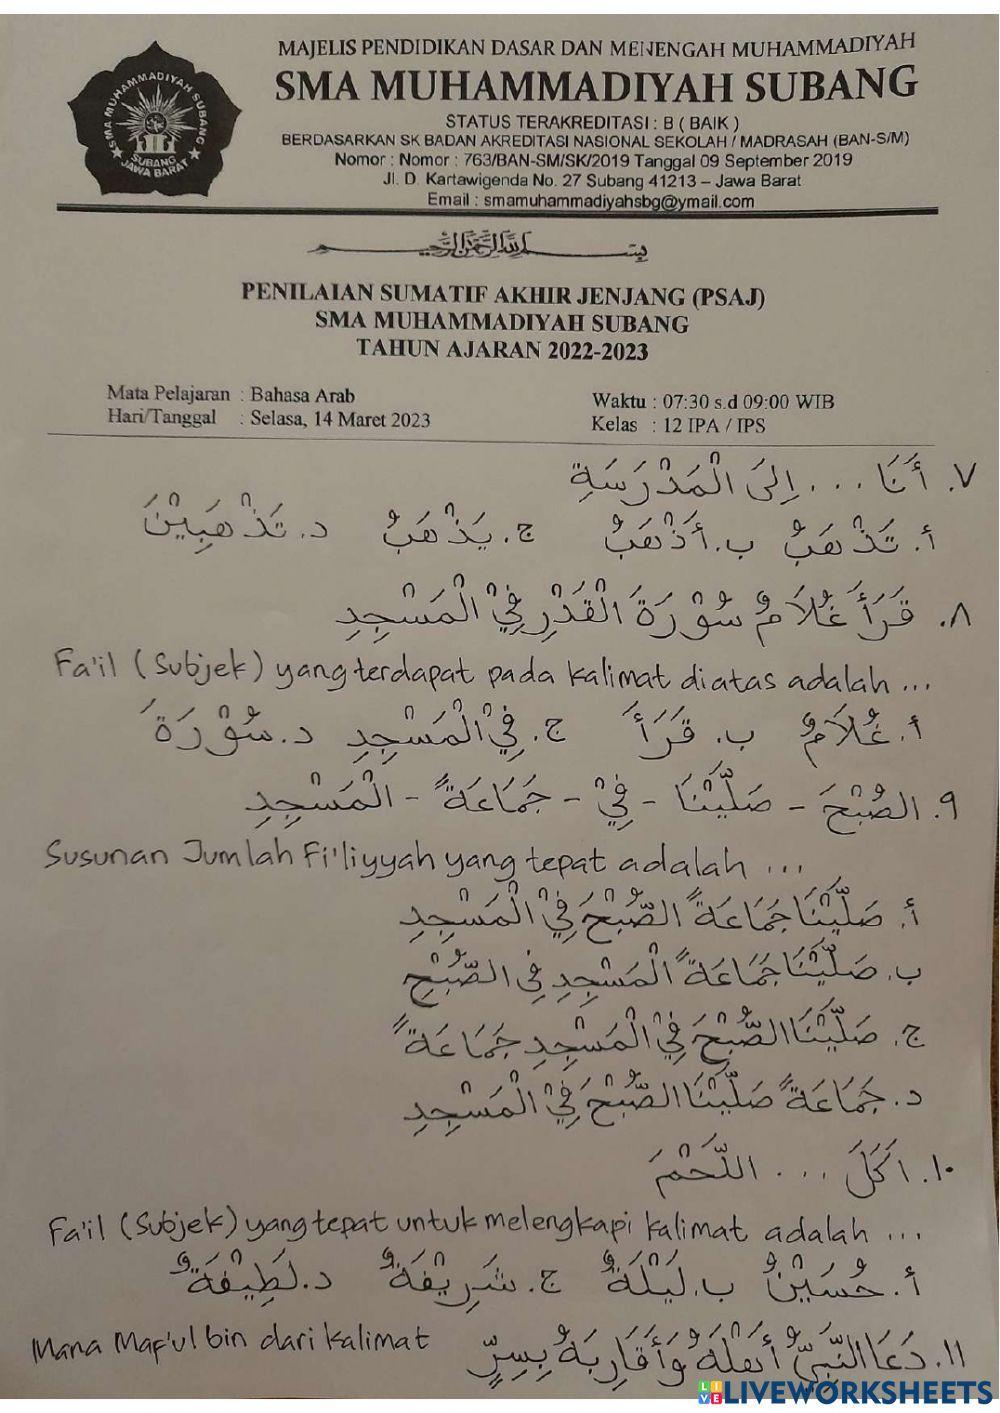 MAJELIS PENDIDIKAN DASAR DAN MENENGAH MUHAMMADIYAH
SMA MUHAMMADIYAH SUBANG
STATUS TERAKREDITASI : B ( BAIK )
BERDASARKAN SK BADAN AKREDITASI NASIONAL SEKOLAH / MADRASAH (BAN-S/M)
Nomor : Nomor : 763/BAN-SM/SK/2019 Tanggal 09 September 2019
Jl. D. Kartawigenda No. 27 Subang 41213 – Jawa Barat
Email : smamuhammadiyahsbg@ymail.com
SMA MUHAMMADIYAH SUBANG
SUBANG
JAWA BARAT
بسم الله الرحمن الرحيم
PENILAIAN SUMATIF AKHIR JENJANG (PSAJ)
SMA MUHAMMADIYAH SUBANG
TAHUN AJARAN 2022-2023
Mata Pelajaran : Bahasa Arab
Waktu : 07:30 s.d 09:00 WIB
Hari/Tanggal : Selasa, 14 Maret 2023
Kelas : 12 IPA / IPS
٧. أَنَا ... إِلَى الْمَدْرَسَةِ
أ. تَذْهَبُ ب. أَذْهَبُ ج. يَذْهَبُ د. تَذْهَبِيْنَ
٨. قَرَأَ غُلَامٌ سُوْرَةَ الْقَدْرِ فِيْ الْمَسْجِدِ
Fa'il (Subjek) yang terdapat pada kalimat diatas adalah ...
أ. غُلَامٌ ب. قَرَأَ ج. فِيْ الْمَسْجِدِ د. سُوْرَةَ
٩. الصُبْحَ - صَلَّيْنَا - فِيْ - جَمَاعَةً - الْمَسْجِدِ
Susunan Jumlah Fi'liyyah yang tepat adalah ...
أ. صَلَّيْنَا جَمَاعَةً الصُّبْحَ فِيْ الْمَسْجِدِ
ب. صَلَّيْنَا جَمَاعَةً الْمَسْجِدِ فِى الصُّبْحِ
ج. صَلَّيْنَا الصُّبْحَ فِيْ الْمَسْجِدِ جَمَاعَةً
د. جَمَاعَةً صَلَّيْنَا الصُّبْحَ فِيْ الْمَسْجِدِ
١٠. اَكَلَ ... اللَّحْمَ
Fa'il (Subjek) yang tepat untuk melengkapi kalimat adalah ...
أ. حُسَيْنٌ ب. لَيْلَةٌ ج. شَرِيْفَةٌ د. لَطِيْفَةٌ
Mana Maf'ul bih dari kalimat ١١. دَعَا النَّبِيُّ أَهْلَهُ وَأَقَارِبَهُ بِسِرٍّ
LIVEWORKSHEETS